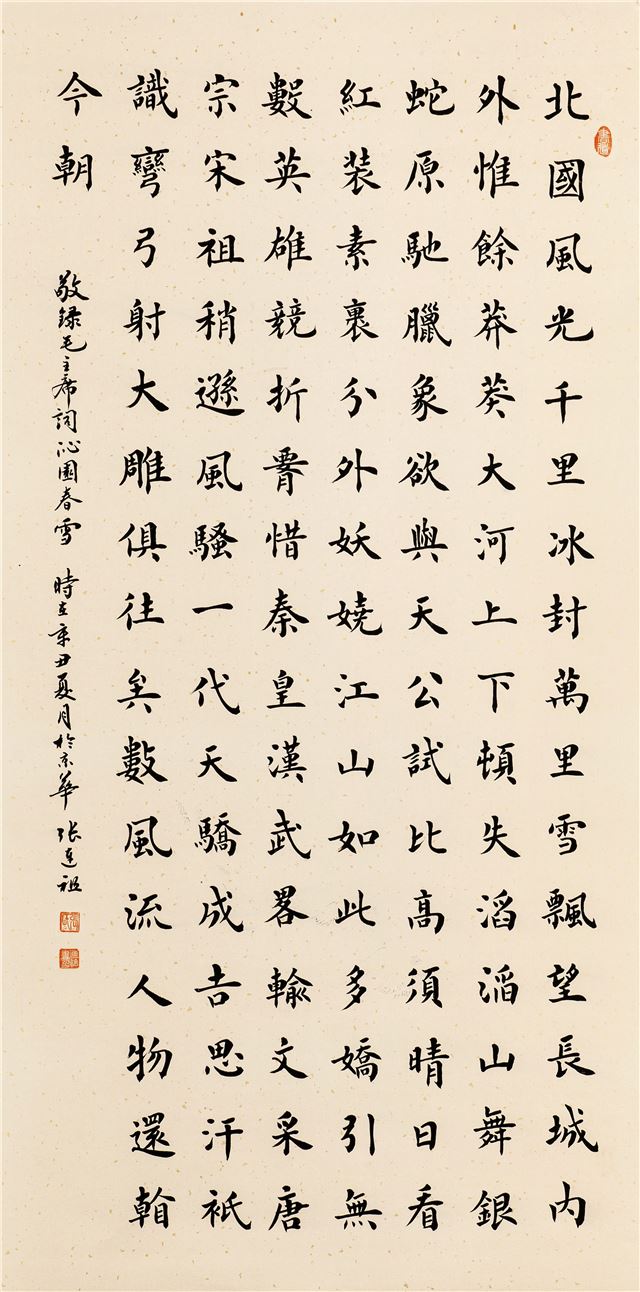 北國風光千里冰封萬里雪飄望長城内
外惟餘莽莽大河上下頓失滔滔山舞銀
蛇原馳臘象欲與天公試比高須晴日看
紅装素裹分外妖嬈江山如此多嬌引無
數英雄競折腰惜秦皇漢武畧輸文采唐
宗宋祖稍遜風騷一代天驕成吉思汗衹
識彎弓射大雕俱往矣數風流人物還看
今朝
敬録毛主席詞沁園春雪 時在辛丑夏月於京華 張連祖